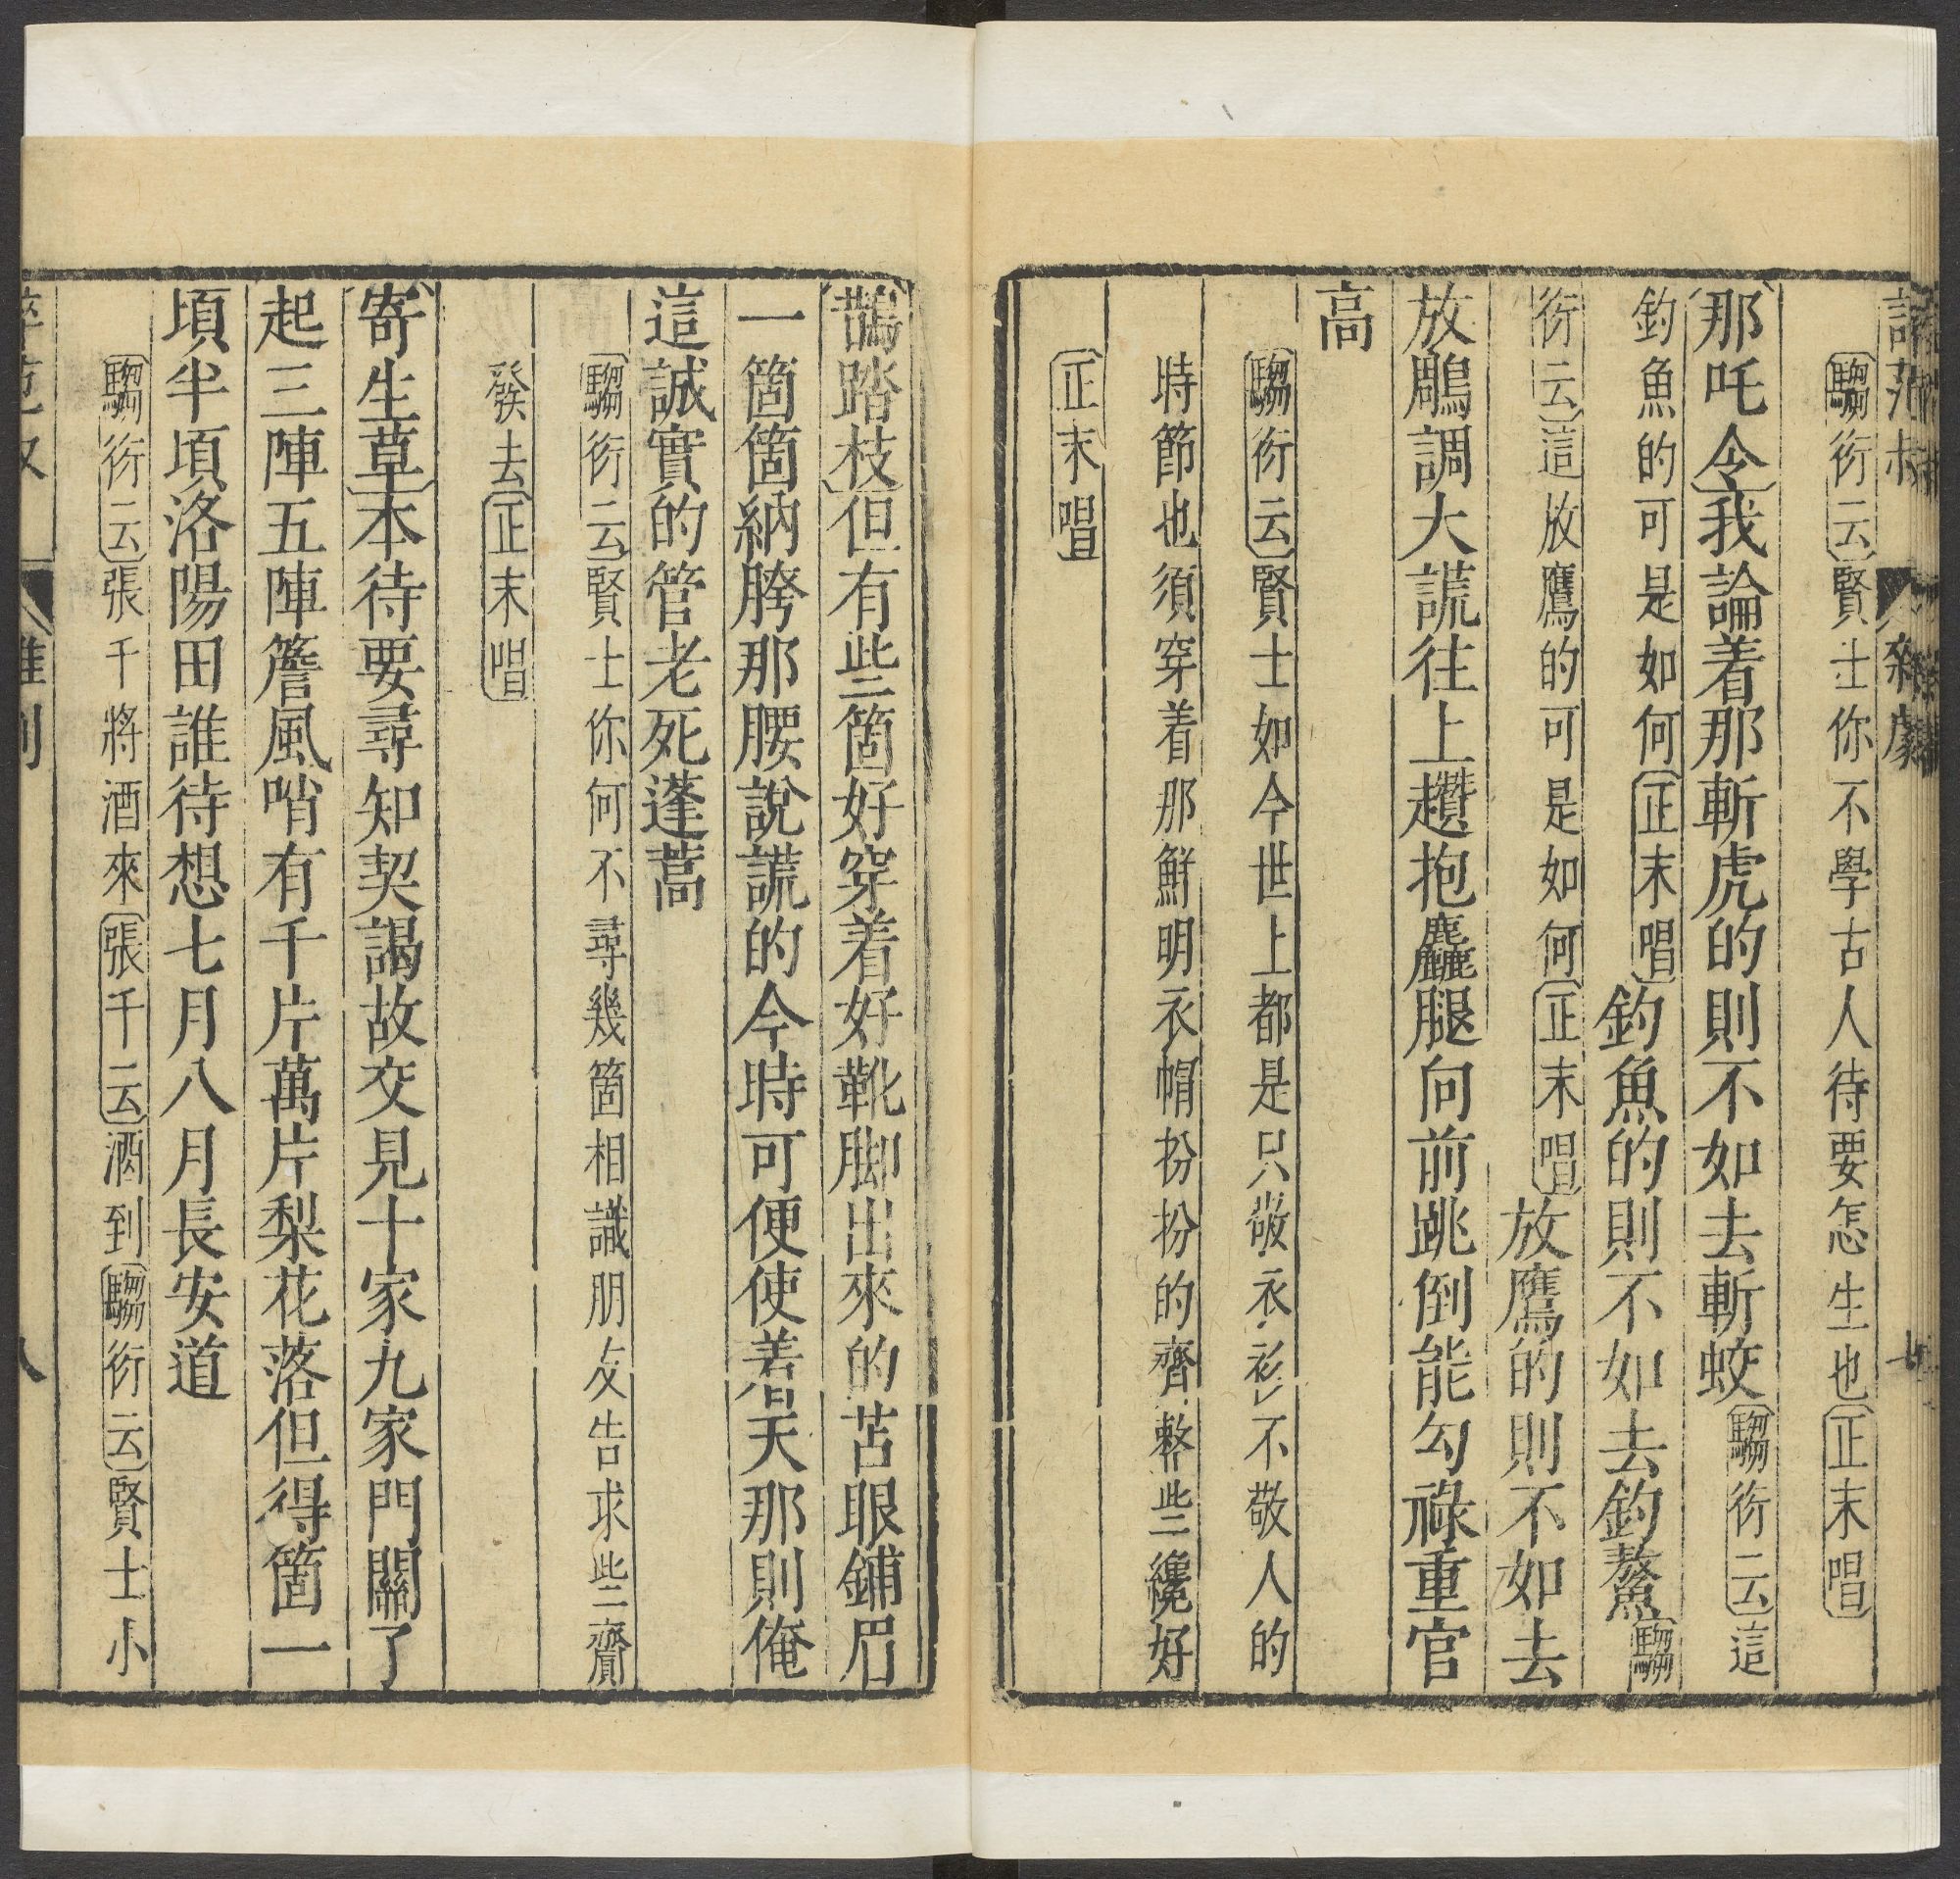 誶范叔 雜劇 七
騶衍云賢士你不學古人待要怎生也正末唱
那吒令我論着那斬虎的則不如去斬蛟騶衍云這
釣魚的可是如何正末唱釣魚的則不如去釣鰲騶
衍云這放鷹的可是如何正末唱放鷹的則不如去
放鵰調大謊往上趲抱麤腿向前跳倒能勾祿重官
高
騶衍云賢士如今世上都是只敬衣衫不敬人的
時節也須穿着那鮮明衣帽扮扮的齊整些纔好
正末唱
鵲踏枝但有些箇好穿着好靴脚出來的苫眼鋪眉
一箇箇納胯那腰說謊的今時可便使着天那則俺
這誠實的管老死蓬蒿
騶衍云賢士你何不尋幾箇相識朋友告求些齎
發去正末唱
寄生草本待要尋知契謁故交見十家九家門關了
起三陣五陣簷風哨有千片萬片梨花落但得箇一
頃半頃洛陽田誰待想七月八月長安道
騶衍云張千將酒來張千云酒到騶衍云賢士小
八